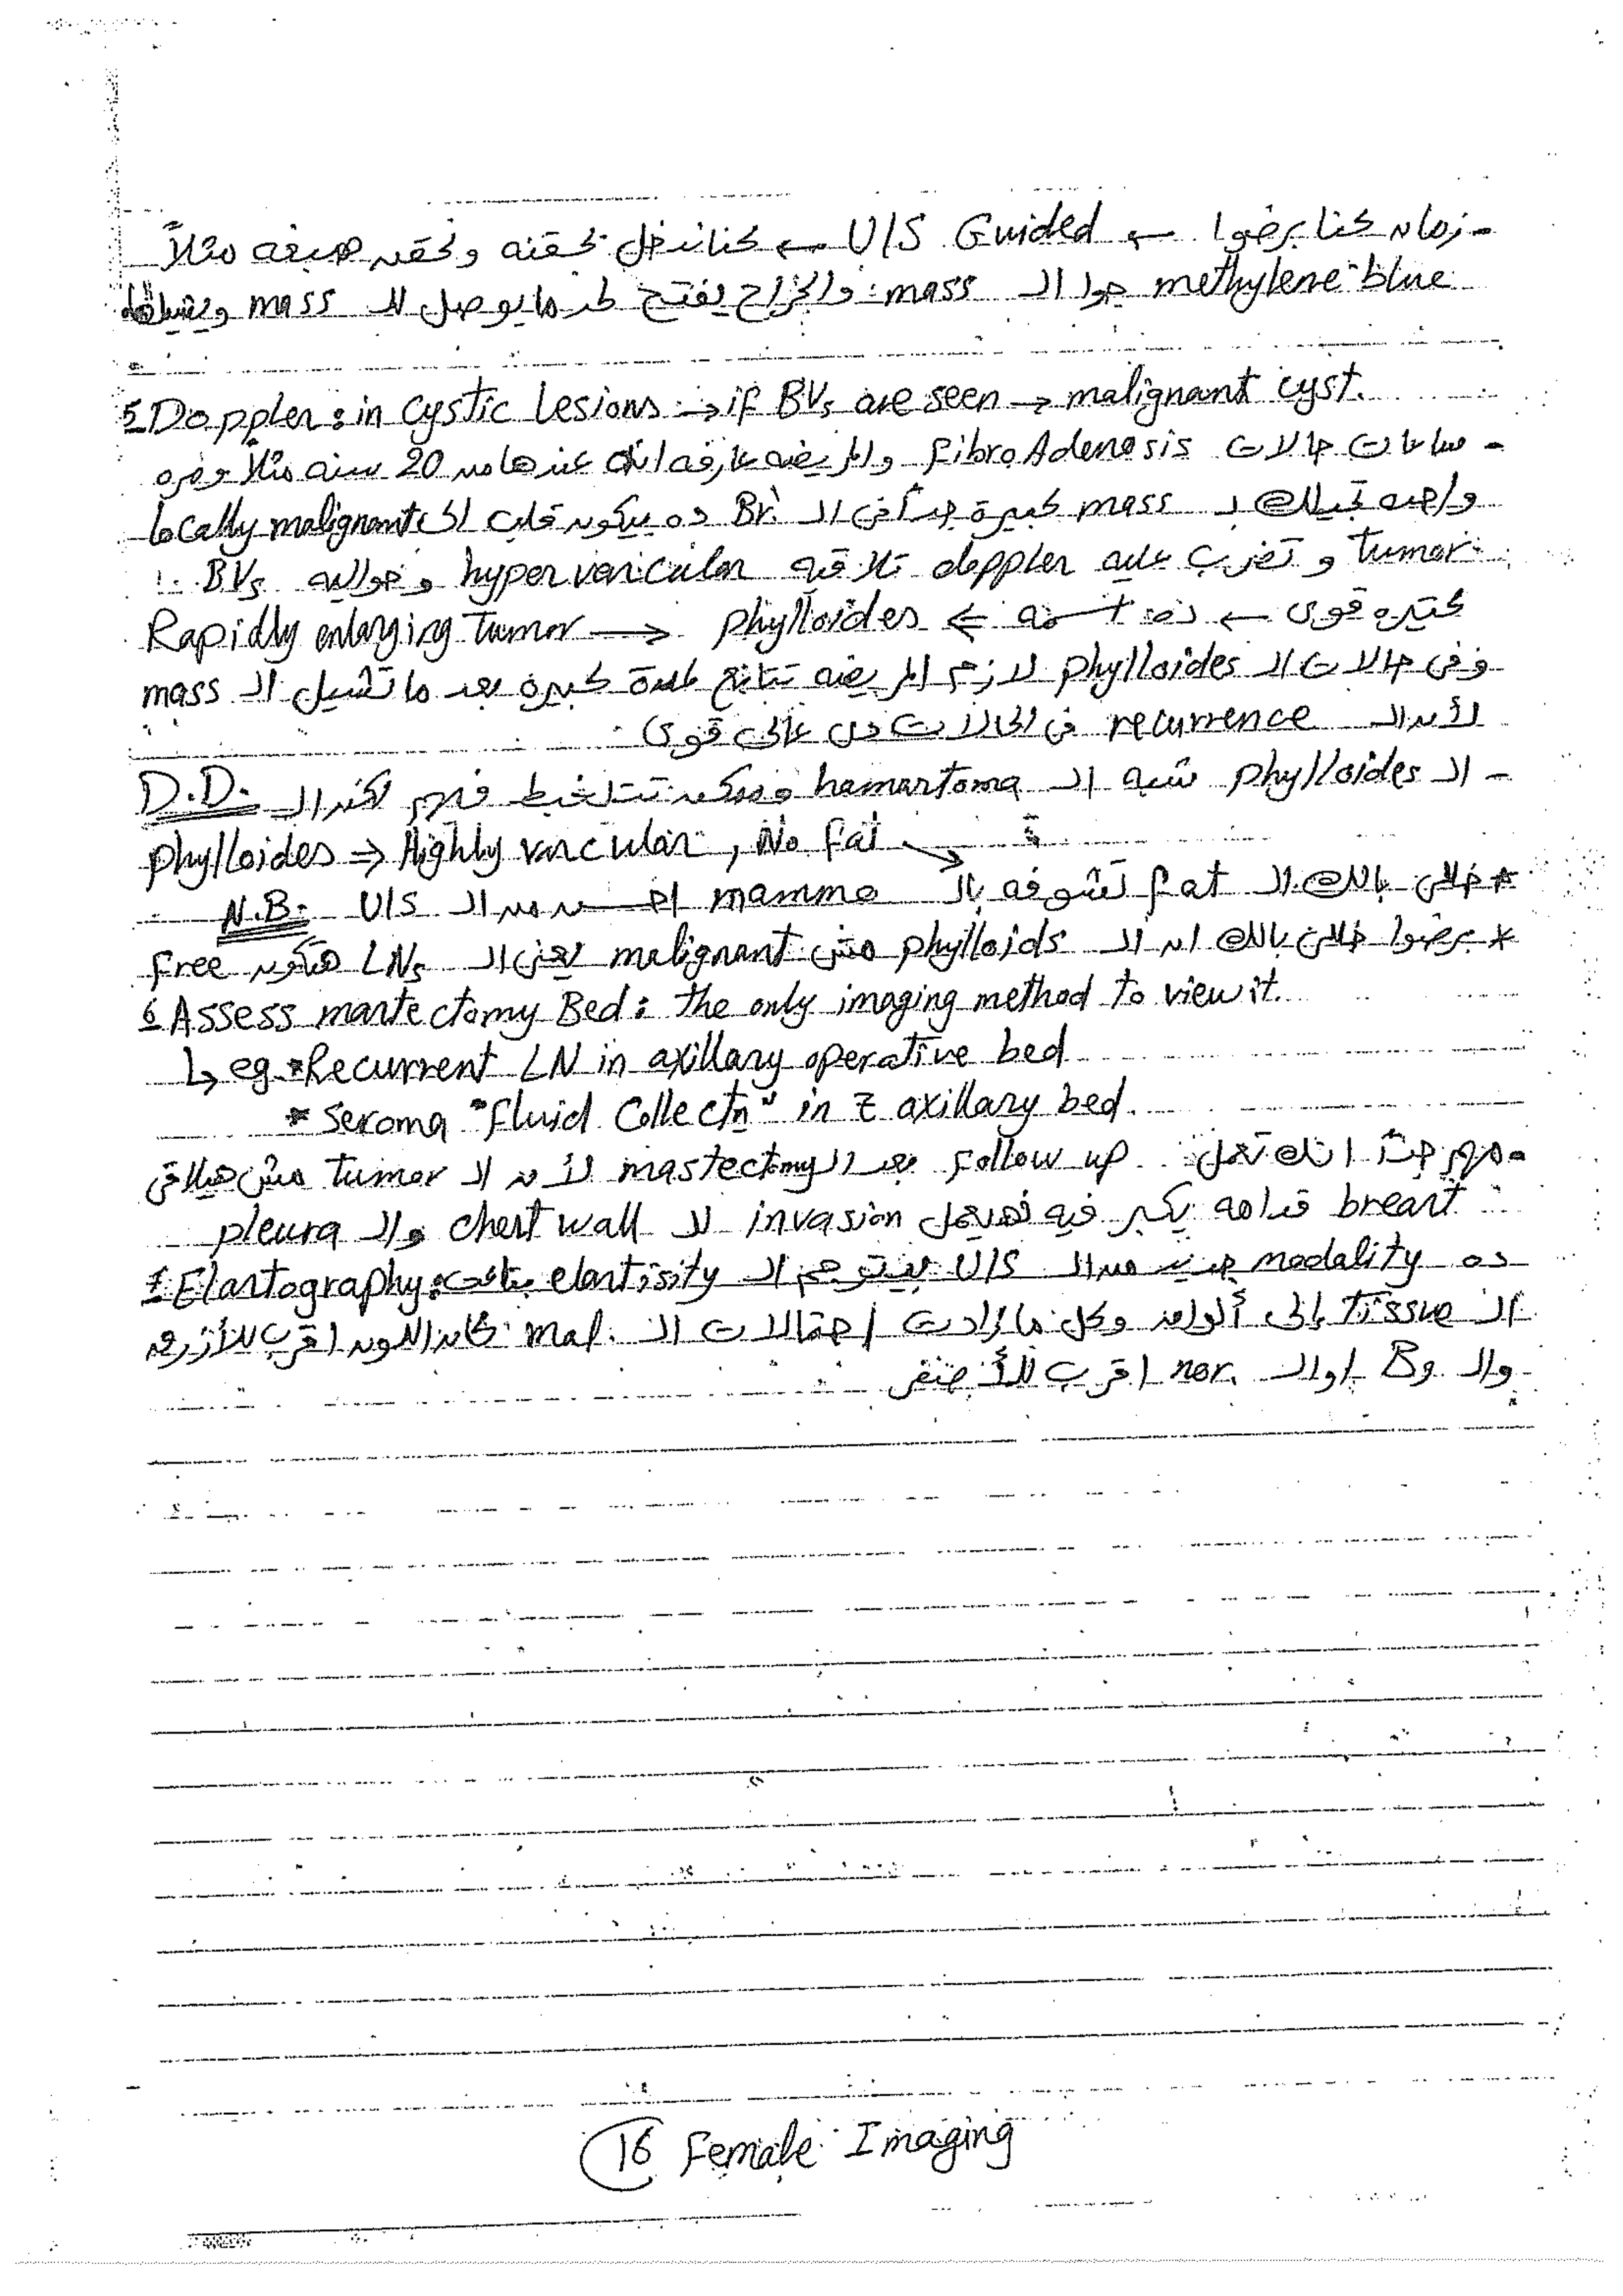 - زمان كنا برضوا ← U/S Guided ← كنا ندخل بحقنه ونحقن صبغه مثلاً
methylene blue جوا الـ mass والجراح يفتح لحد ما يوصل للـ mass ويشيلها
5 Doppler: in Cystic Lesions → if BVs are seen → malignant cyst.
- ساعات حالات FibroAdenosis والمريضه عارفه انه عندها من 20 سنه مثلاً ومره
واحده تجيلك بـ mass كبيرة جداً فى الـ Br. ده بيكون قلب الى locally malignant
tumor و تضرب عليه doppler تلاقيه hypervascular وحواليه BVs
كتيره قوى ← ده اسمه ⇐ phylloides ← Rapidly enlarging tumor
وفى حالات الـ phylloides لازم المريضه تتابع لمدة كبيره بعد ما تشيل الـ mass
لأن الـ recurrence فى الحالات دى عالى قوى
- الـ phylloides شبه الـ hamartoma وممكن تتلخبط فيهم لكن الـ D.D.
phylloides ⇒ Highly vascular, No fat
* خلى بالك الـ fat تشوفه بالـ mammo احسن من الـ U/S N.B.
* برضوا خلى بالك ان الـ phylloids مش malignant يعنى الـ LNs هتكون Free
6 Assess mastectomy Bed: the only imaging method to view it.
↳ eg * Recurrent LN in axillary operative bed
* Seroma "fluid Collectn" in Z axillary bed.
- مهم جداً انك تعمل follow up بعد الـ mastectomy لأن الـ tumor مش هيلاقى
breast قدامه يكبر فيه فهيعمل invasion للـ chest wall والـ pleura
7 Elastography: ده modality جديد من الـ U/S بيترجم الـ elastisity بتاعت
الـ Tissue إلى ألوان وكل ما زادت احتمالات الـ mal. كان اللون اقرب للأزرق
والـ Bو اوالـ nor. اقرب للأخضر
16 Female Imaging